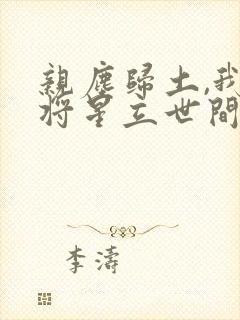 親塵歸土,我
将星立世間
李濤